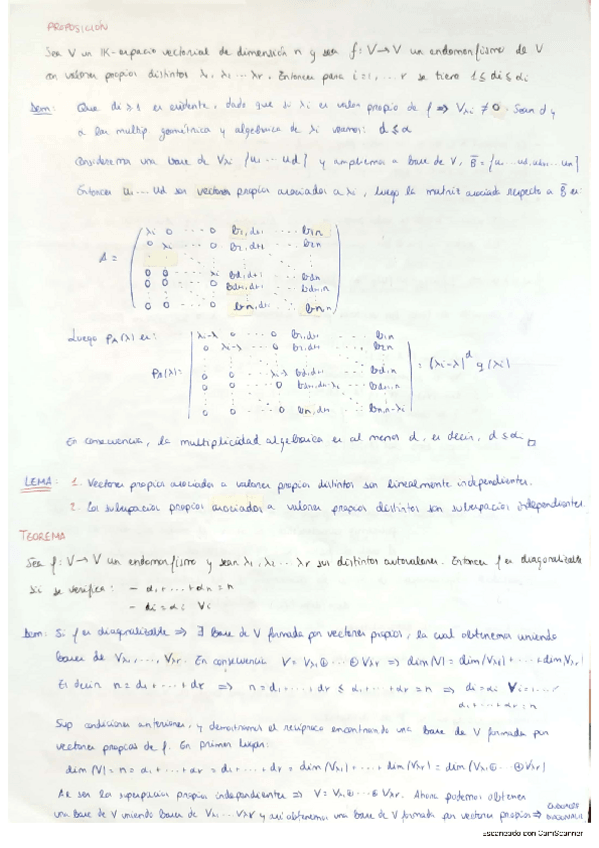 PROPOSICIÓN
Sea V un IK-espacio vectorial de dimensión n y sea f: V→V un endomorfismo de V
con valores propios distintos λ₁, λ₂ ... λr. Entonces para i=1, ... r se tiene 1 ≤ di ≤ αi
Dem: Que di ≥ 1 es evidente, dado que si λi es valor propio de f ⇒ Vλi ≠ 0. Sean d y
α las multip. geométrica y algebraica de λi veamos: d ≤ α
Consideremos una base de Vλi {u₁ ... ud} y ampliemos a base de V, B̄ = {u₁ ... ud, ud+1 ... un}
Entonces u₁ ... ud son vectores propios asociados a λi, luego la matriz asociada respecto a B̄ es:
λi 0 ... 0 b1,d+1 ... b1n
0 λi ... 0 b2,d+1 ... b2n
A =
0 0 ... λi bd,d+1 ... bdn
0 0 ... 0 bd+1,d+1 ... bd+1,n
0 0 ... 0 bn,d+1 ... bn,n
Luego PA(λ) es:
λi-λ 0 ... 0 b1,d+1 ... b1n
0 λi-λ ... 0 b2,d+1 ... b2n
PA(λ) = = (λi-λ)^d g(λi)
0 0 ... λi-λ bd,d+1 ... bd,n
0 0 ... 0 bd+1,d+1-λi ... bd+1,n
0 0 ... 0 bn,d+1 ... bn,n-λi
En consecuencia, la multiplicidad algebraica es al menos d, es decir, d ≤ α. □
LEMA: 1. Vectores propios asociados a valores propios distintos son linealmente independientes.
2. Los subespacios propios asociados a valores propios distintos son subespacios independientes.
TEOREMA
Sea f: V→V un endomorfismo y sean λ₁, λ₂ ... λr sus distintos autovalores. Entonces f es diagonalizable
sii se verifica: - α₁ + ... + αr = n
- di = αi ∀i
Dem: Si f es diagonalizable ⇒ ∃ base de V formada por vectores propios, la cual obtenemos uniendo
bases de Vλ₁, ..., Vλr. En consecuencia V = Vλ₁ ⊕ ... ⊕ Vλr ⇒ dim(V) = dim(Vλ₁) + ... + dim(Vλr)
Es decir n = d₁ + ... + dr ⇒ n = d₁ + ... + dr ≤ α₁ + ... + αr = n ⇒ di = αi ∀i = 1...r
α₁ + ... + αr = n
Sup condiciones anteriores, y demostramos el recíproco encontrando una base de V formada por
vectores propios de f. En primer lugar:
dim(V) = n = α₁ + ... + αr = d₁ + ... + dr = dim(Vλ₁) + ... + dim(Vλr) = dim(Vλ₁ ⊕ ... ⊕ Vλr)
Al ser los subespacios propios independientes ⇒ V = Vλ₁ ⊕ ... ⊕ Vλr. Ahora podemos obtener
una base de V uniendo bases de Vλr y así obtenemos una base de V formada por vectores propios ⇒
Escaneado con CamScanner